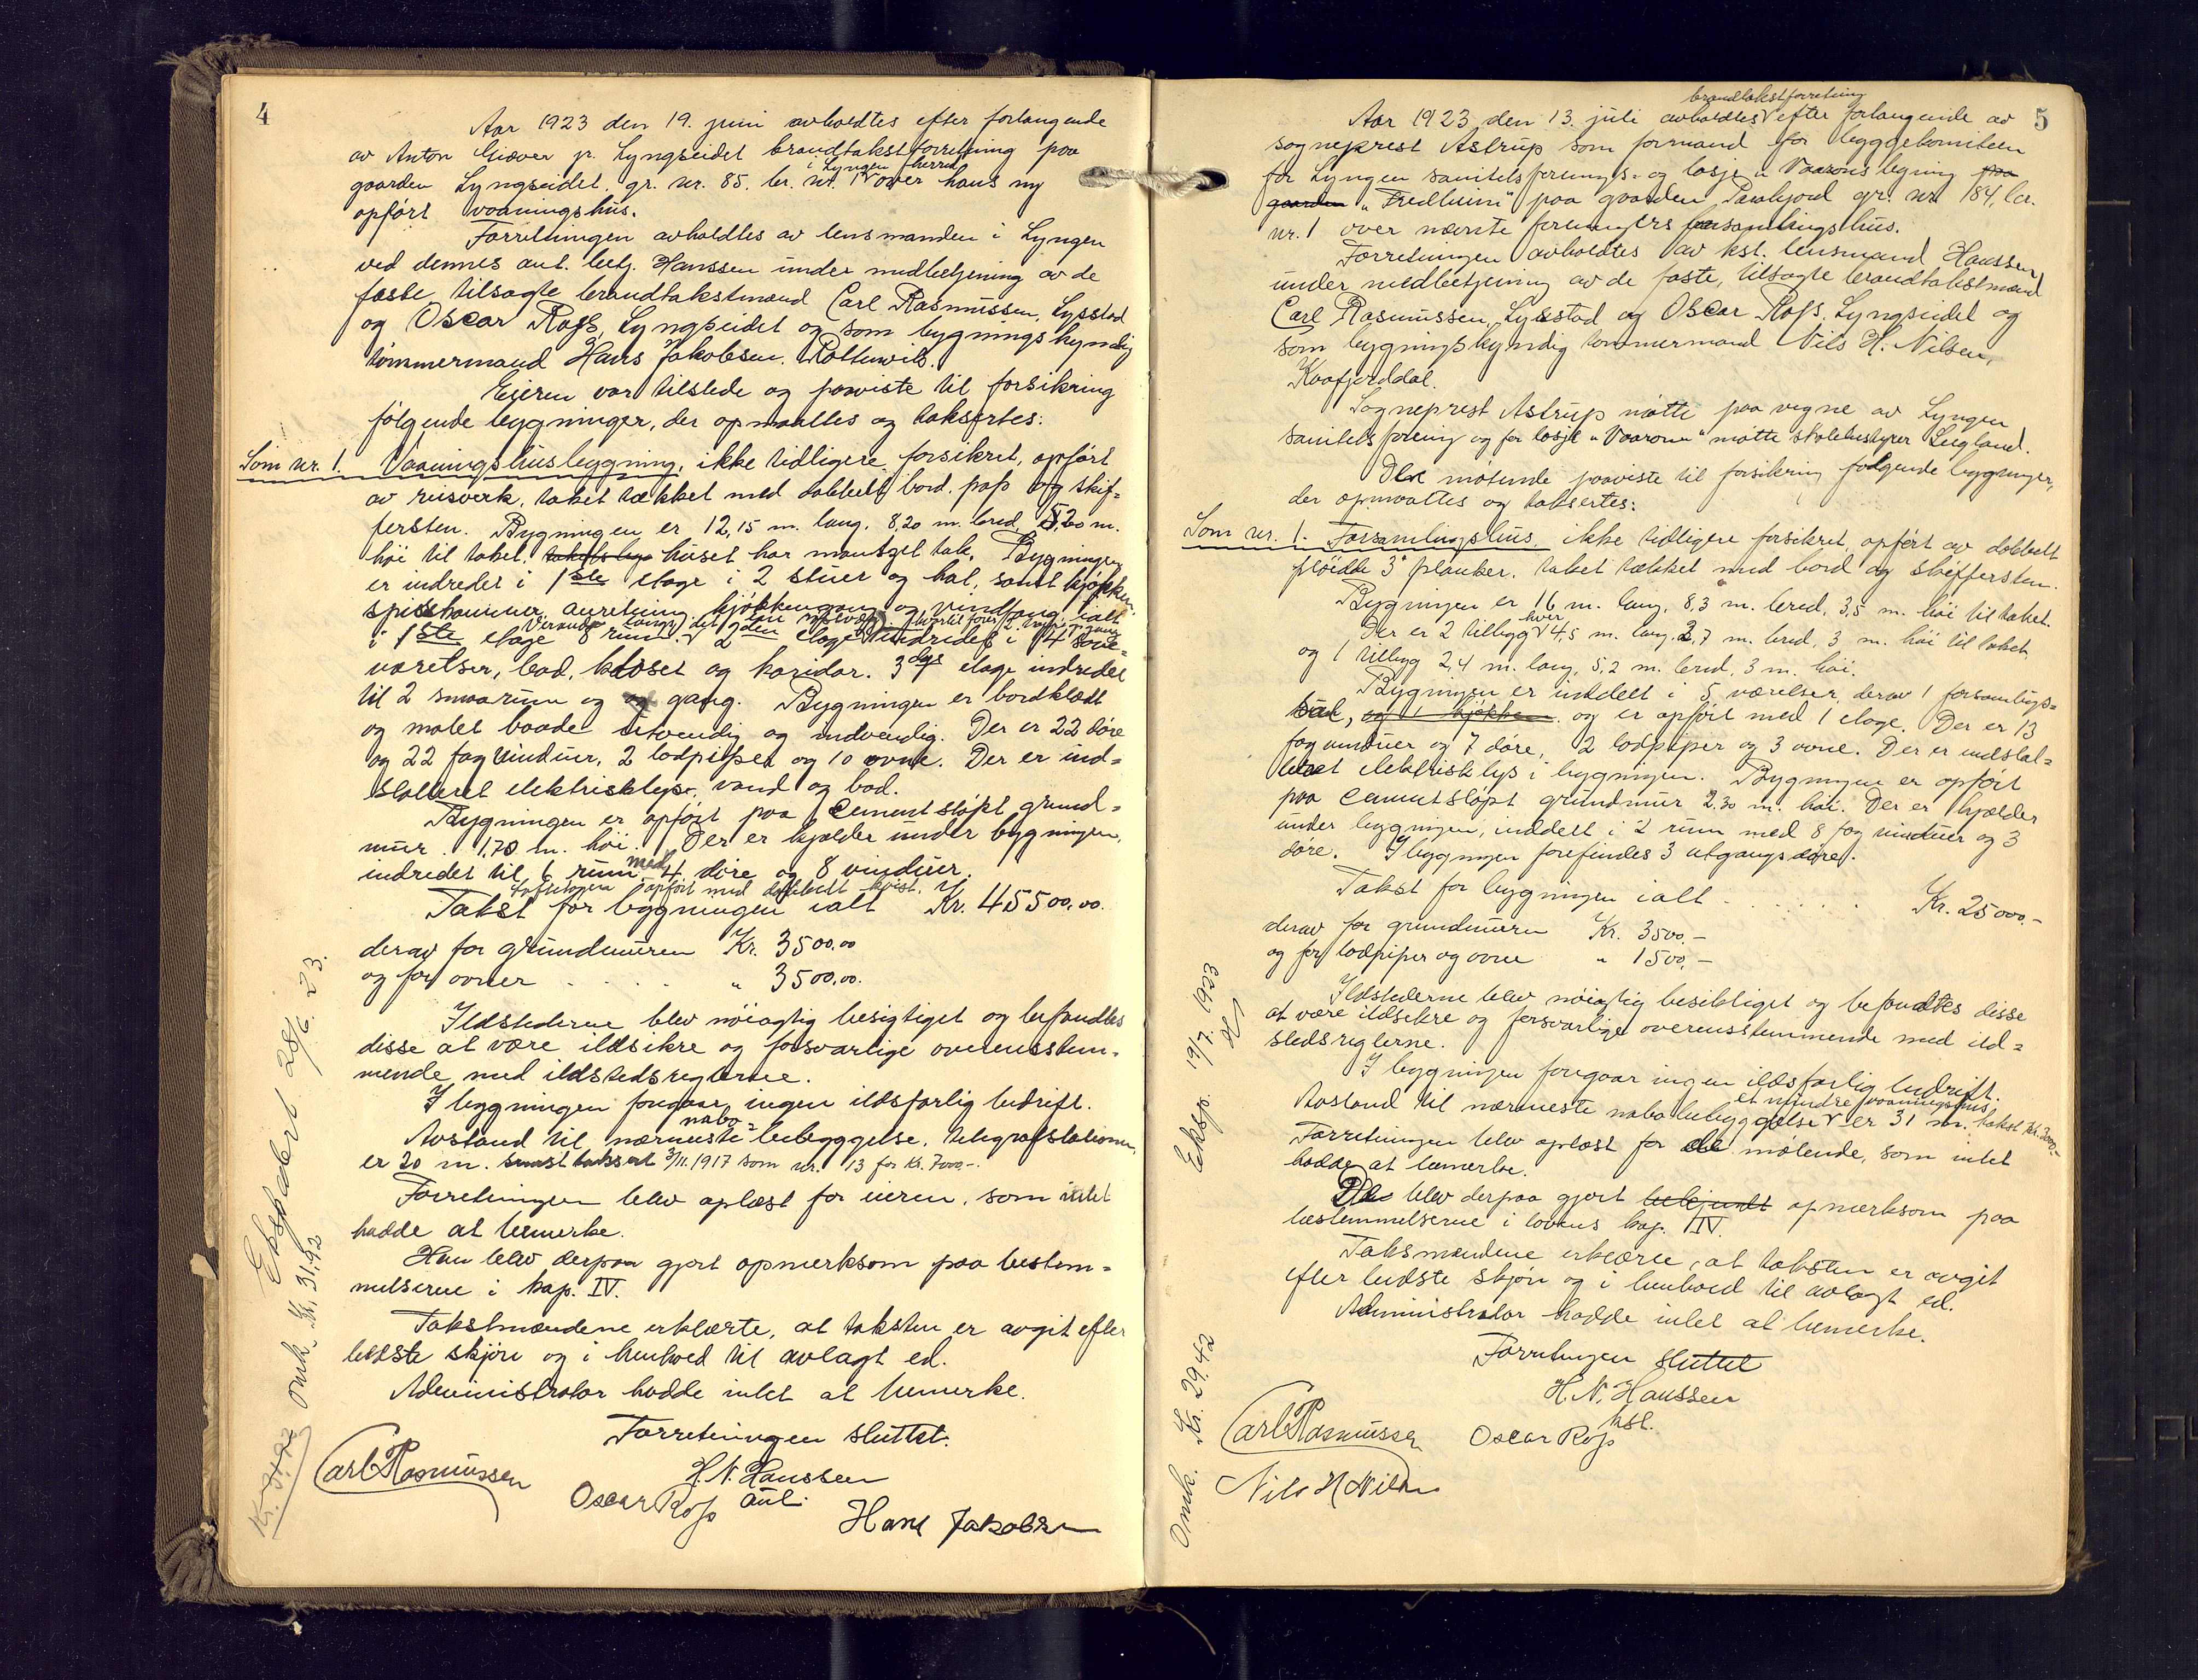 4
Aar 1923 den 19. juni avholdtes efter forlangende
av Anton Giæver jr. Lyngseidet brandtakstforretning paa
i Lyngen herred
gaarden Lyngseidet, gr. nr. 85, br. nr. 1 over hans ny
opført vaaningshus.
Forretningen avholdtes av lensmanden i Lyngen
ved dennes aut. betj. Hanssen under medbetjening av de
faste tilsagte brandtakstmænd Carl Rasmussen, Lysstad
og Oscar Rafs, Lyngseidet og som bygningskyndig
tømmermand Hans Jakobsen,
Eieren var tilstede og paaviste til forsikring
følgende bygninger, der opmaaltes og taksertes:
Som nr. 1. Vaaningshusbygning, ikke tidligere forsikret, opført
av reisverk, taket tækket med dobbelt bord, pap og skif=
fersten. Bygningen er 12,15 m. lang, 8,20 m. bred, 5,20 m.
høi til taket, huset har mansart tak. Bygningen
er indredet i 1ste etage i 2 stuer og hal, samt kjøkken,
spiskammer, anretning, kjøkkengang og vindfang, ialt
i 1ste etage 8 rum. 2den etage indredet i 4 sove=
værelser, bad, kloset og koridor. 3dje etage indredet
til 2 smaarum og gang. Bygningen er bordklædt
og malet baade utvendig og indvendig. Der er 22 døre
og 22 fag vinduer, 2 lodpiper og 10 ovne. Der er ind=
stalleret elektrisklys, vand og bad.
Bygningen er opført paa cement støpt grund=
mur 1,70 m. høi. Der er kjælder under bygningen,
indredet til 6 rum med 4 døre og 8 vinduer.
opført med dobbelt kvist.
Takst for bygningen ialt Kr. 45500.00.
derav for grundmuren Kr. 3500.00
og for ovner . . . . . " 3500.00.
Ildstederne blev nøiagtig besigtiget og befandtes
disse at være ildsikre og forsvarlige overensstem=
mende med ildstedsreglerne.
I bygningen foregaar ingen ildsfarlig bedrift.
Avstand til nærmeste nabo=bebyggelse, telegrafstationen,
er 20 m. senest taksert 3/11.1917 som nr. 13 for Kr. 7000.-
Forretningen blev oplæst for eieren, som intet
hadde at bemerke.
Han blev derpaa gjort opmerksom paa bestem=
melserne i kap. IV.
Takstmændene erklærte, at taksten er avgit efter
bedste skjøn og i henhold til avlagt ed.
Administrator hadde intet at bemerke.
Forretningen sluttet.
H. N. Hanssen
aut.
Carl Rasmussen
Oscar Rafs
Hans Jakobsen
Ekspedert 28/6. 23.
Omk. Kr. 31.92
Kr. 31.92
5
brandtakstforretning
Aar 1923 den 13. juli avholdtes efter forlangende av
sogneprest Astrup som formand for byggekomiteen
for Lyngen sanitetsforenings= og losje "Vaarons" bygning paa
gaarden "Fredheim" paa gaarden Parakjord gr. nr. 184, br.
nr. 1 over nævnte foreningers forsamlingshus.
Forretningen avholdtes av kst. lensmand Hanssen
under medbetjening av de faste, tilsagte brandtakstmænd
Carl Rasmussen, Lysstad og Oscar Rafs, Lyngseidet og
som bygningskyndig tømmermand Nils H. Nilsen,
Kaafjorddal.
Sogneprest Astrup møtte paa vegne av Lyngen
sanitetsforening og for losje "Vaaron" møtte skolebestyrer Leigland.
De møtende paaviste til forsikring følgende bygninger,
der opmaaltes og taksertes:
Som nr. 1. Forsamlingshus, ikke tidligere forsikret, opført av dobbelt
pløide 3" planker, taket tækket med bord og skiffersten.
Bygningen er 16 m. lang, 8,3 m. bred, 3,5 m. høi til taket.
hver
Der er 2 tilbygg 4,5 m. lang, 2,7 m. bred, 3 m. høi til taket
og 1 tilbygg 2,4 m. lang, 5,2 m. bred, 3 m. høi.
Bygningen er inddelt i 5 værelser, derav 1 forsamlings=
sal, og 1 kjøkken og er opført med 1 etage. Der er 13
fag vinduer og 7 døre, 2 lodpiper og 3 ovne. Der er indstal=
leret elektrisk lys i bygningen. Bygningen er opført
paa cementstøpt grundmur 2.30 m. høi. Der er kjælder
under bygningen, inddelt i 2 rum med 8 fag vinduer og 3
døre. I bygningen forefindes 3 utgangsdøre.
Takst for bygningen ialt . . . . . . Kr. 25000.-
derav for grundmuren Kr. 3500.-
og for lodpiper og ovne " 1500.-
Ildstederne blev nøiagtig besiktiget og befandtes disse
at være ildsikre og forsvarlige overensstemmende med ild=
stedsreglerne.
I bygningen foregaar ingen ildsfarlig bedrift.
et mindre vaaningshus
Avstand til nærmeste nabobebyggelse er 31 m. takst kr. 3000.-
Forretningen blev oplæst for de møtende, som intet
hadde at bemerke.
De blev derpaa gjort bekjendt opmerksom paa
bestemmelserne i lovens kap. IV.
Taksmændene erklærte, at taksten er avgit
efter bedste skjøn og i henhold til avlagt ed.
Administrator hadde intet at bemerke.
Forretningen sluttet
H. N. Hanssen
kst.
Carl Rasmussen
Oscar Rafs
Nils H Nilsen
Eksp. 19/7. 1923
Omk. Kr. 29.42